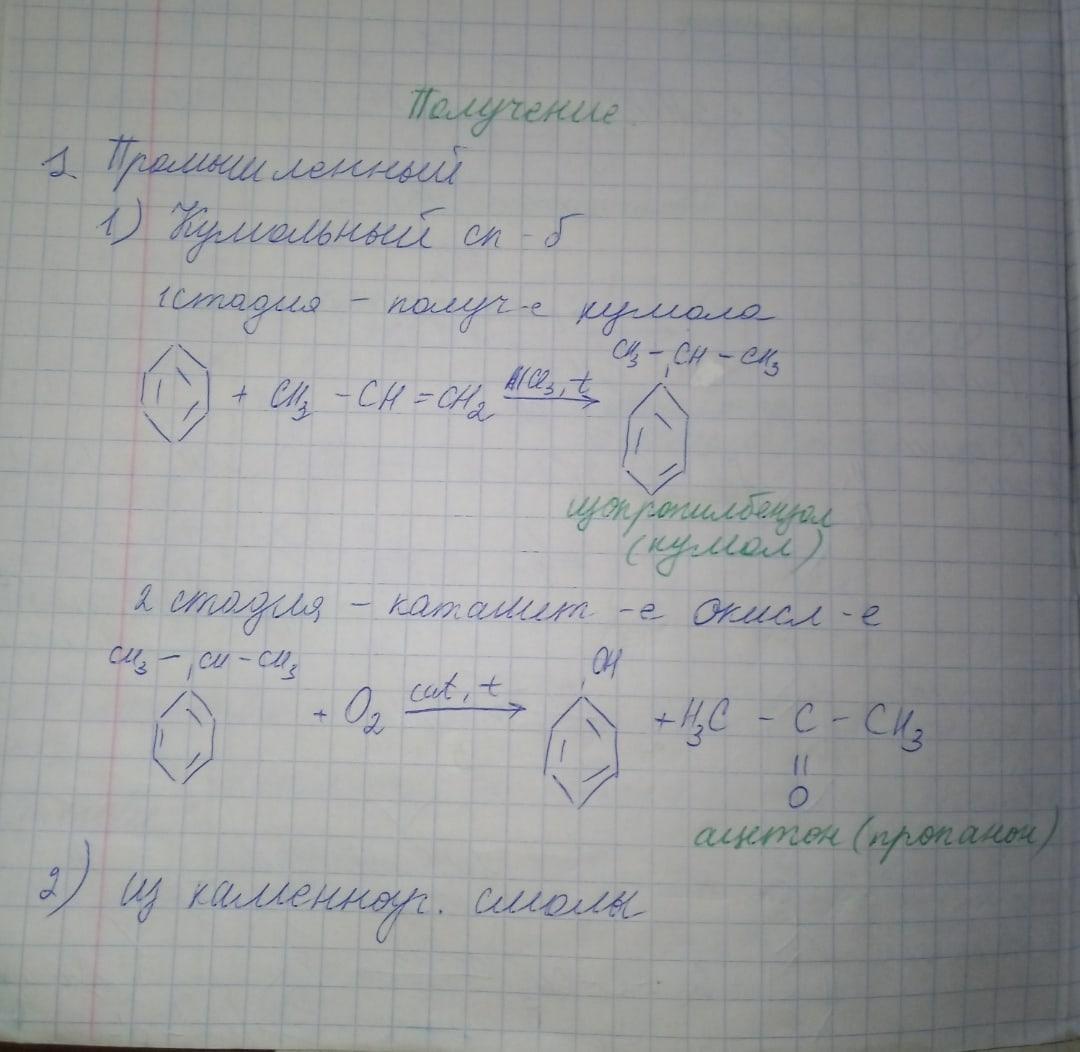 Получение
1 Промышленный
1) Кумольный сп-б
1 стадия - получ-е кумола
CH3 - CH - CH3
+ CH3 - CH = CH2 AlCl3, t
изопропилбензол
(кумол)
2 стадия - каталит-е окисл-е
CH3 - CH - CH3
OH
+ O2 cat, t + H3C - C - CH3
O
ацетон (пропанон)
2) из каменноуг. смолы